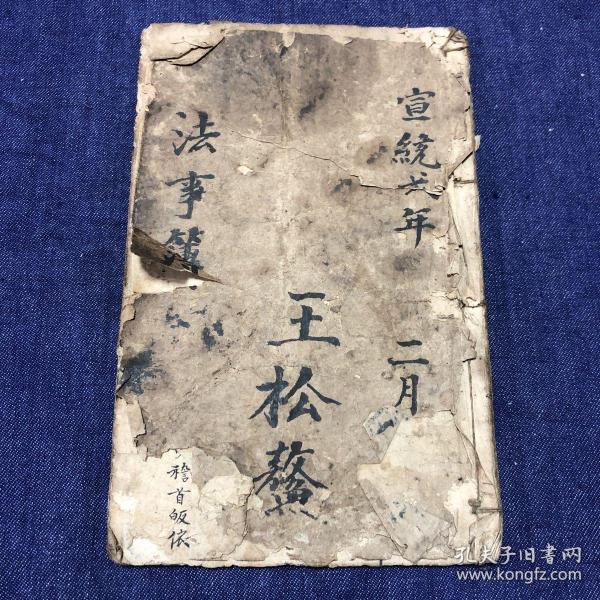 宣統弍年
二月
王松鰲
法事簿
稽首皈依
孔夫子旧书网
www.kongfz.com